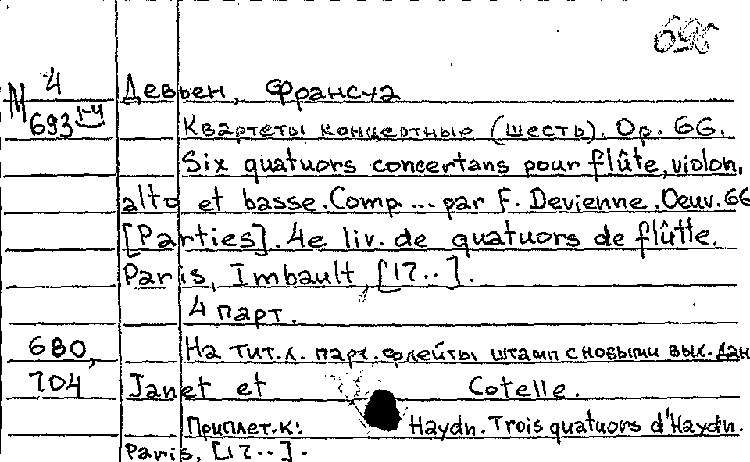 696
М 4 Девьен, Франсуа
693 1-4 Квартеты концертные (шесть). Op. 66.
Six quatuors concertans pour flûte, violon,
alto et basse. Comp ... par F. Devienne. Oeuv. 66
[Parties]. 4e liv. de quatuors de flûtte.
Paris, Imbault, [17..].
4 парт.
680, На тит. л. парт. флейты штамп с новыми вых. дан
704 Janet et Cotelle.
Приплет. к: Haydn. Trois quatuors d'Haydn.
Paris, [17..].